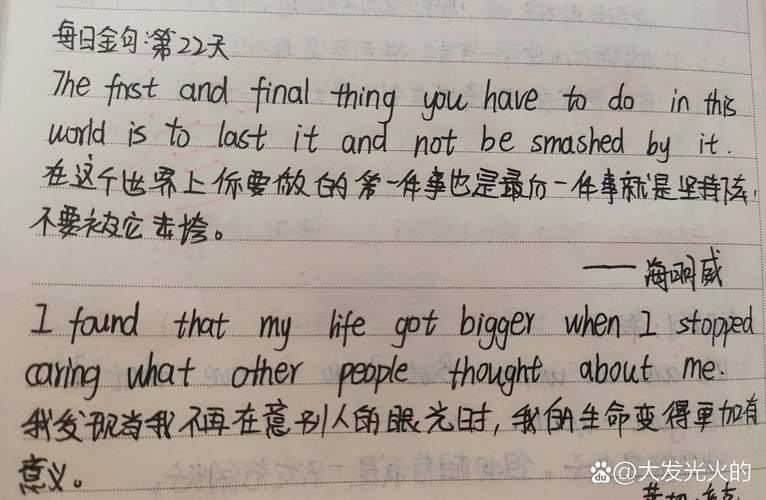 每日金句:第22天
The first and final thing you have to do in this
world is to last it and not be smashed by it.
在这个世界上你要做的第一件事也是最后一件事就是坚持下去,
不要被它击垮。
——海明威
I found that my life got bigger when I stopped
caring what other people thought about me.
我发现当我不再在意别人的眼光时,我的生命变得更加有
意义。
@大发光火的